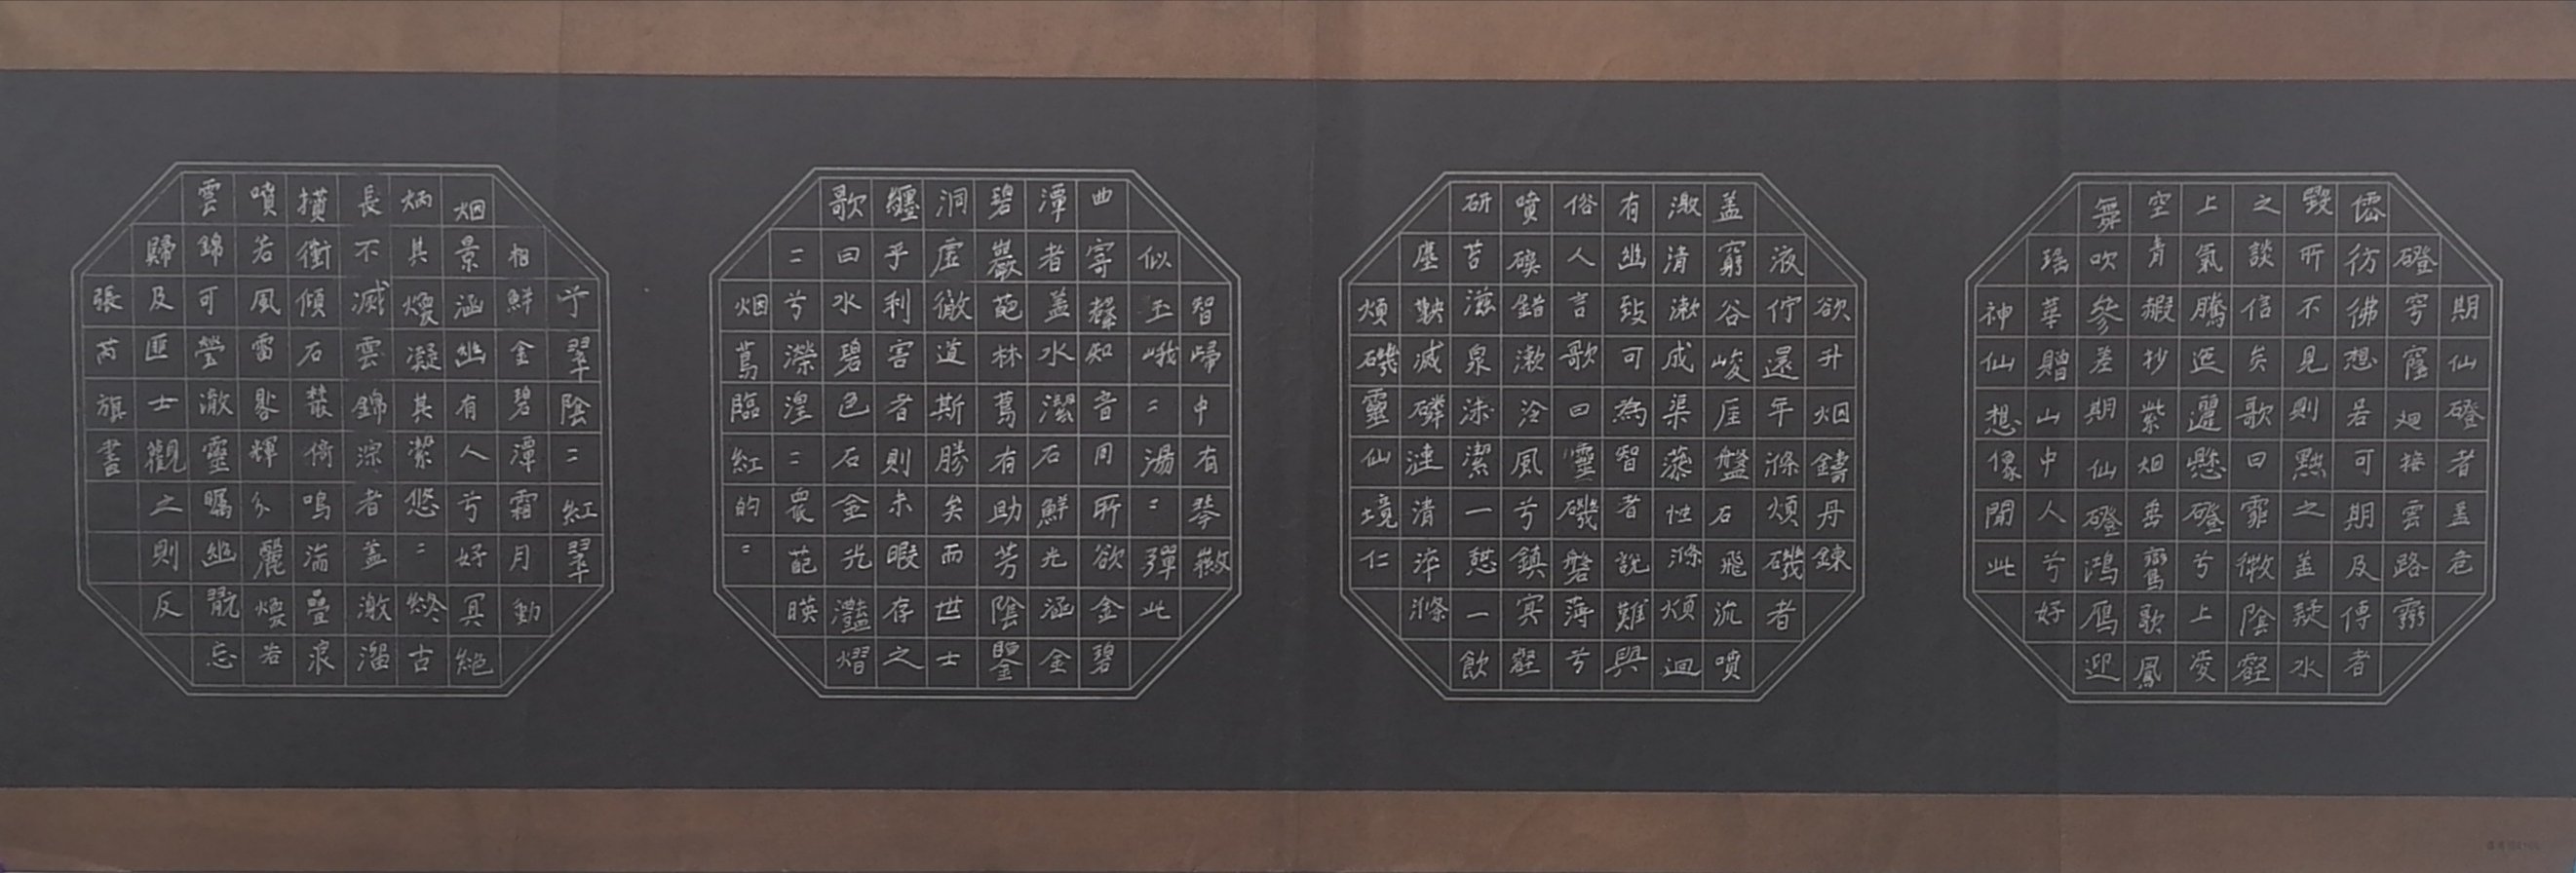 期仙磴者蓋危
磴穹窿廻接雲路靈
僊彷彿想若可期及傳者
毀所不見則黜之蓋疑水
之談信矣歌曰霏微陰壑
上氣騰迤邐懸磴兮上凌
空青霞抄紫烟垂鸞歌鳳
舞吹參差期仙磴鴻雁迎
瑶華贈山中人兮好
神仙想像聞此
欲升烟鑄丹鍊
液佇還年滌煩磯者
蓋窮谷峻厓盤石飛流噴
激清漱成渠滌性滌煩迴
有幽致可為智者說難與
俗人言歌曰靈磯磐薄兮
噴礉錯漱泠風兮鎮冥壑
研苔滋泉沫潔一憩一飲
塵鞅滅磷漣清淬滌
煩磯靈仙境仁
智歸中有琴徽
似玉峨=湯=彈此
曲寄聲知音同所欲金碧
潭者蓋水潔石鮮光涵金
碧巖葩林蔦有助芳陰鑒
洞虛徹道斯勝矣而世士
纏乎利害者則未暇存之
歌曰水碧色石金光灩熠
=兮濴湟=叢葩暎
烟蔦臨紅的=
兮翠陰=紅翠
相鮮金碧潭霜月動
烟景涵幽有人兮好冥絕
炳其煥凝其潔悠=終古
長不滅雲錦淙者蓋激溜
攢衝傾石叢倚鳴湍疊浪
噴若風雷晷輝分麗煥若
雲錦可瑩激靈矚幽翫忘
歸及匪士觀之則反
張芮旗書